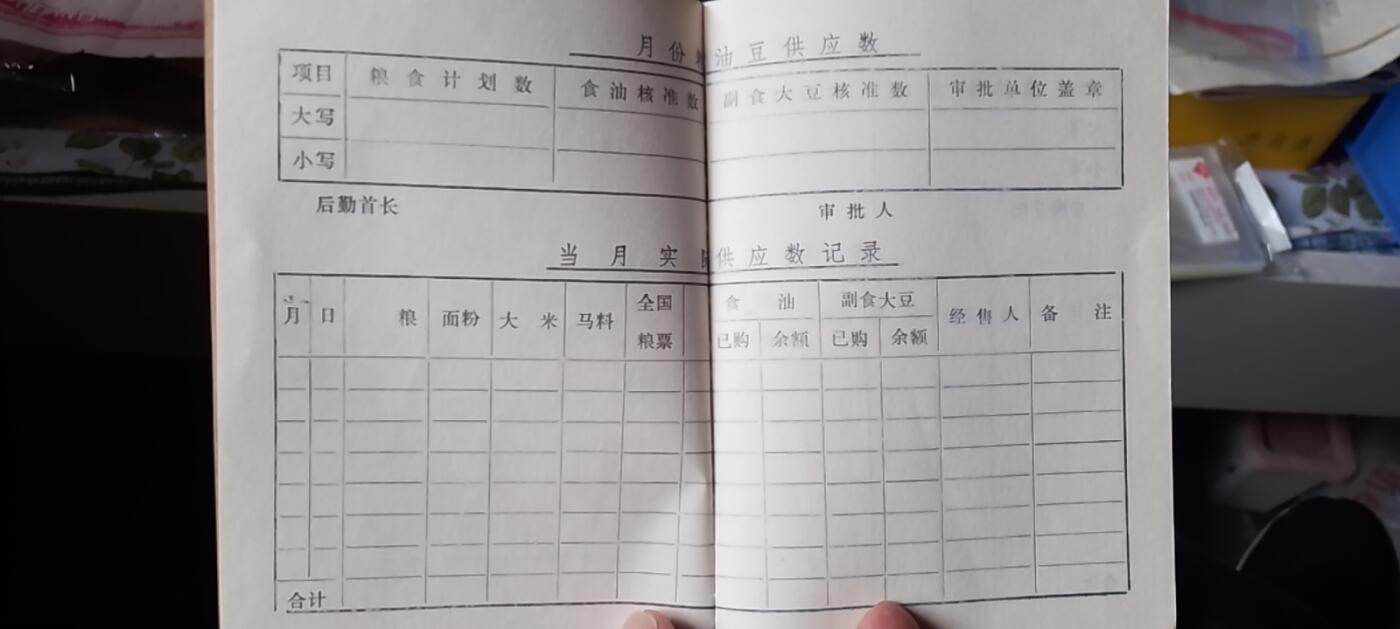 月份粮油豆供应数
项目 粮食计划数 食油核准数 副食大豆核准数 审批单位盖章
大写
小写
后勤首长 审批人
当月实际供应数记录
月 日 粮 面粉 大米 马料 全国粮票 食油 副食大豆 经售人 备注
已购 余额 已购 余额
合计